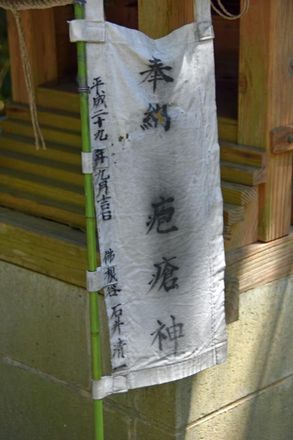 奉納 疱瘡神
平成二十九年九月吉日
石井 清